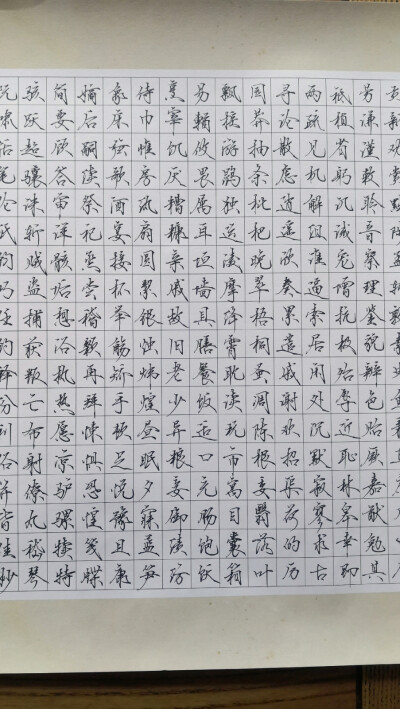 劳谦谨敕聆音察理鉴貌辨色贻厥嘉猷勉其
祗植省躬讥诫宠增抗极殆辱近耻林皋幸即
两疏见机解组谁逼索居闲处沉默寂寥求古
寻论散虑逍遥欣奏累遣戚谢欢招渠荷的历
园莽抽条枇杷晚翠梧桐蚤凋陈根委翳落叶
飘摇游鹍独运凌摩绛霄耽读玩市寓目囊箱
易輶攸畏属耳垣墙具膳餐饭适口充肠饱饫
烹宰饥厌糟糠亲戚故旧老少异粮妾御绩纺
侍巾帷房纨扇圆洁银烛炜煌昼眠夕寐蓝笋
象床弦歌酒宴接杯举觞矫手顿足悦豫且康
嫡后嗣续祭祀烝尝稽颡再拜悚惧恐惶笺牒
简要顾答审详骸垢想浴执热愿凉驴骡犊特
骇跃超骧诛斩贼盗捕获叛亡布射僚丸嵇琴
阮啸恬笔伦纸钧巧任钓释纷利俗并皆佳妙